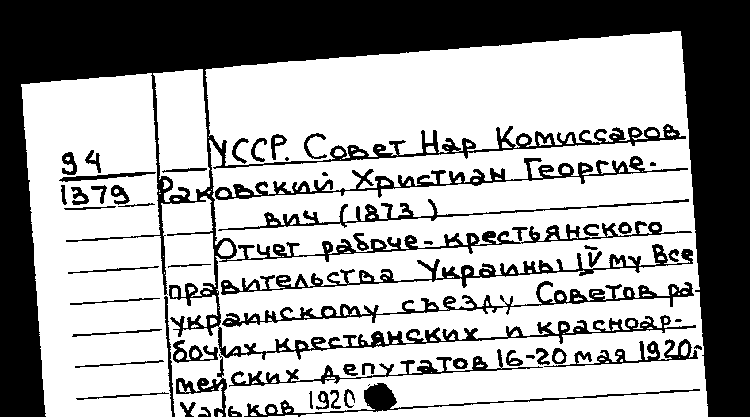 94
1379
УССР. Совет Нар Комиссаров
Раковский, Христиан Георгие-
вич (1873 )
Отчет рабоче-крестьянского
правительства Украины IV му Все
украинскому съезду Советов ра
бочих, крестьянских и красноар-
мейских депутатов 16-20 мая 1920г
Харьков, 1920